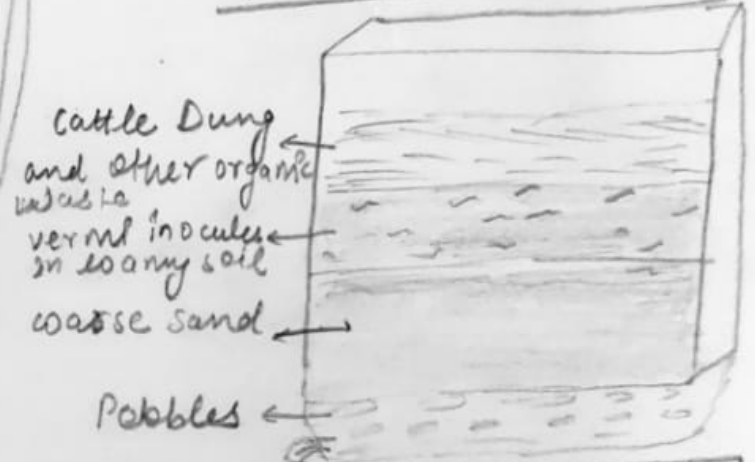 Cattle Dung
and other organic
waste
vermi inocules
in loamy soil
coarse sand
Pebbles